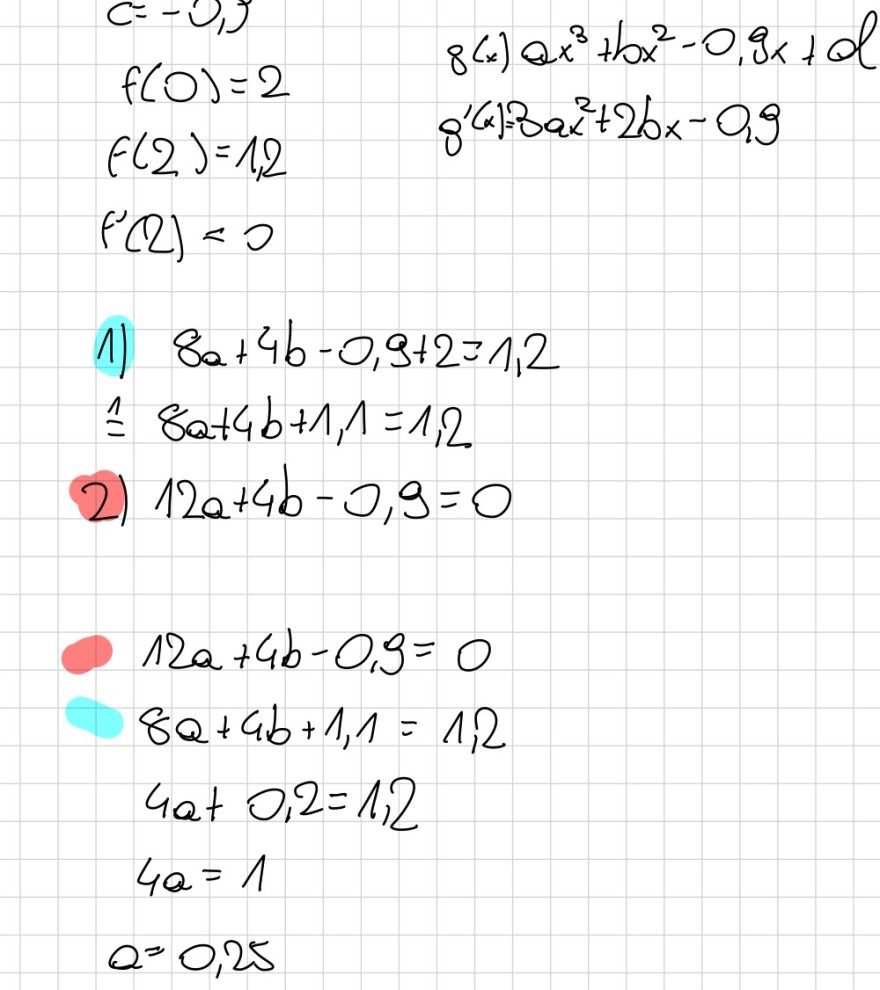 c = -0,9
f(0) = 2
f(2) = 1,2
f'(2) = 0
g(x) ax³+bx²-0,9x+d
g'(x)=3ax²+2bx-0,9
1) 8a+4b-0,9+2=1,2
1= 8a+4b+1,1=1,2
2) 12a+4b-0,9=0
12a+4b-0,9= 0
8a+4b+1,1 = 1,2
4a+ 0,2=1,2
4a = 1
a= 0,25